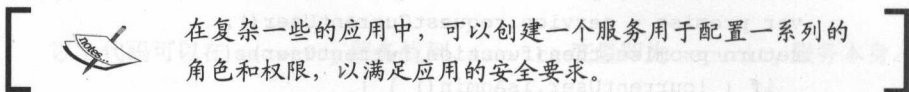 在复杂一些的应用中，可以创建一个服务用于配置一系列的
角色和权限，以满足应用的安全要求。